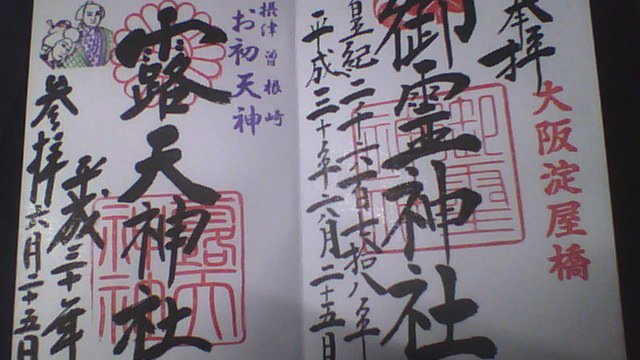 大阪淀屋橋
奉拝
御霊神社
皇紀二千六百七拾八年
平成三十年六月二十五日
摂津 曽根崎
お初天神
露天神社
平成三十年
参拝 六月二十五日